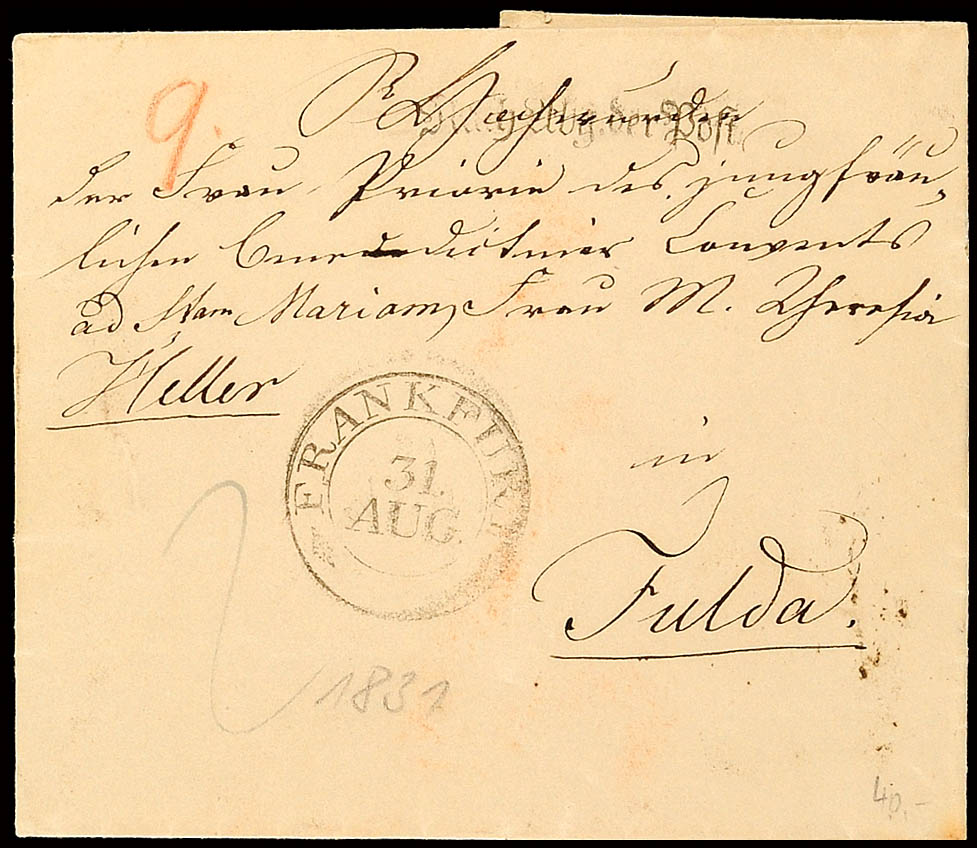 9.
Sr Hochwürden
Nach Abg. der Post
der Frau Priorin des jungfräu-
lichen Benedictiner Convents
ad Stam Mariam, Frau M. Theresia
Heller
FRANKFURT
31
AUG.
in
Fulda.
1831
40,-